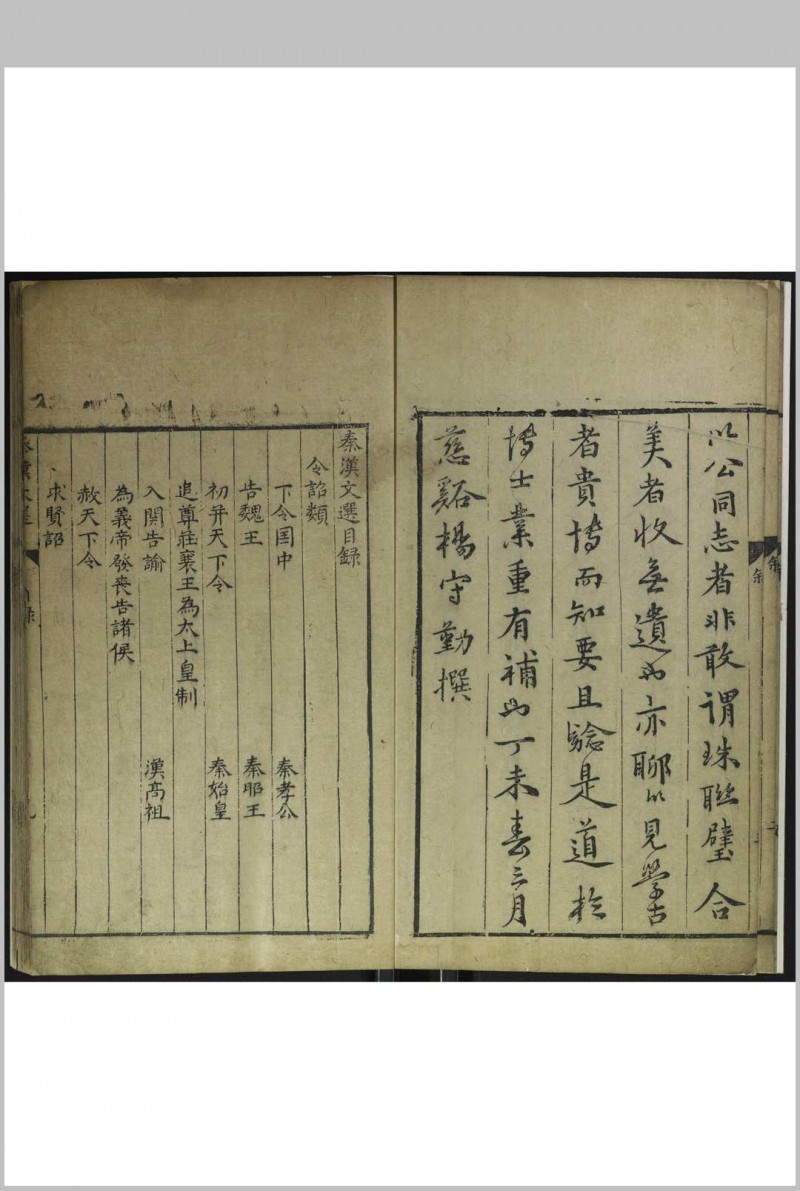 以公同志者非敢谓珠聮璧合
美者收無遺也亦聊以見學古
者貴博而知要且驗是道於
博士業重有補也丁未春三月
慈谿楊守勤撰
秦漢文選目録
令詔類
下令囯中 秦孝公
告魏王 秦昭王
初并天下令 秦始皇
追尊莊襄王為太上皇制
入関告諭 漢高祖
為義帝發喪告諸侯
赦天下令
求賢詔